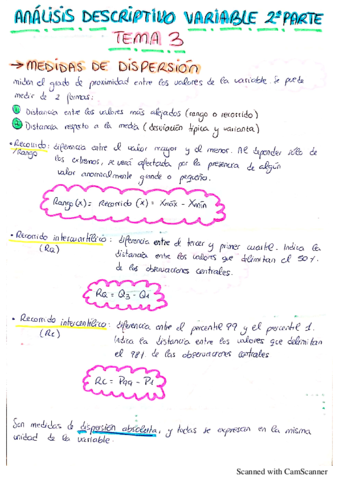 ANÁLISIS DESCRIPTIVO VARIABLE 2ª PARTE
TEMA 3
→ MEDIDAS DE DISPERSIÓN
miden el grado de proximidad entre los valores de la variable. Se puede
medir de 2 formas:
1 Distancia entre los valores más alejados (rango o recorrido)
2 Distancia respecto a la media (desviación típica y varianza)
• Recorrido: diferencia entre el valor mayor y el menor. Al depender sólo de
/Rango los extremos, se verá afectada por la presencia de algún
valor anormalmente grande o pequeño.
Rango (x) = Recorrido (x) = Xmáx - Xmín
• Recorrido intercuartílico: diferencia entre el tercer y primer cuartil. Indica la
(RQ) distancia entre los valores que delimitan el 50%
de las observaciones centrales.
RQ = Q3 - Q1
• Recorrido intercentílico: diferencia entre el percentil 99 y el percentil 1.
(Rc) Indica la distancia entre los valores que delimitan
el 98% de las observaciones centrales
RC = P99 - P1
Son medidas de dispersión absoluta, y todas se expresan en la misma
unidad de la variable.
Scanned with CamScanner